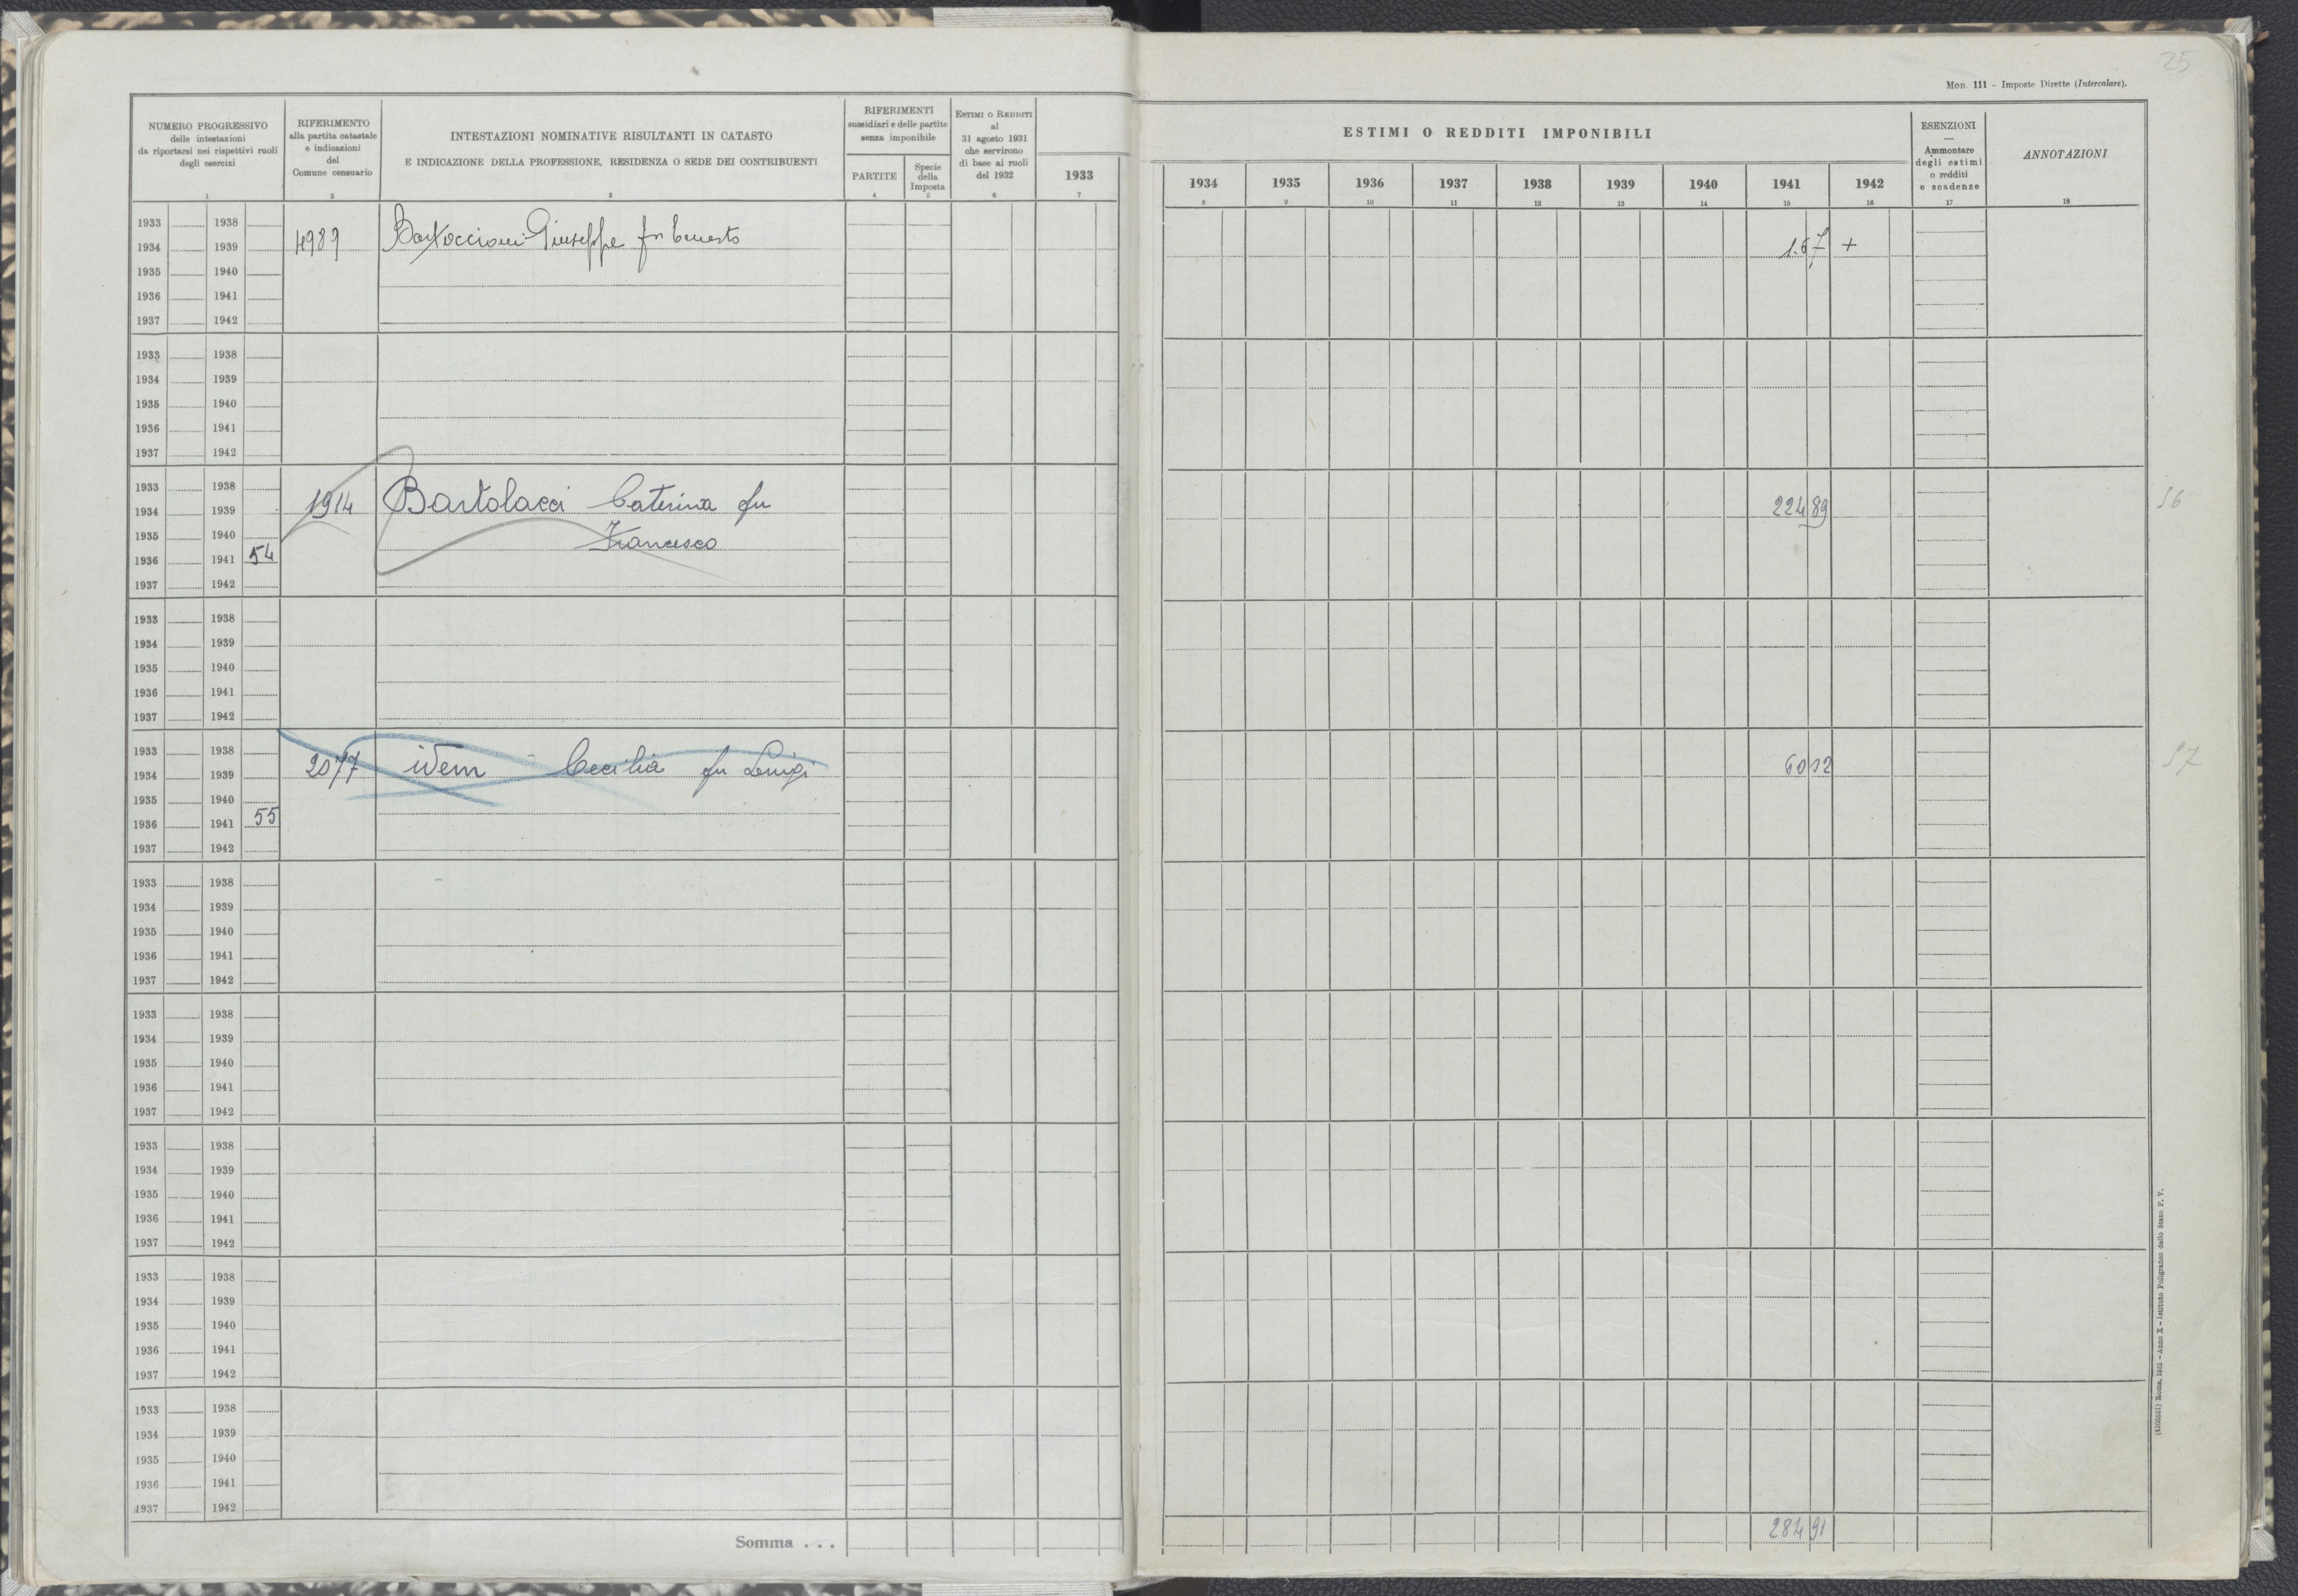 25
MOD. 111 - Imposte Dirette (Intercalare).
NUMERO PROGRESSIVO
delle intestazioni
da riportarsi nei rispettivi ruoli
degli esercizi
1
RIFERIMENTO
alla partita catastale
e indicazioni
del
Comune censuario
2
INTESTAZIONI NOMINATIVE RISULTANTI IN CATASTO
E INDICAZIONE DELLA PROFESSIONE, RESIDENZA O SEDE DEI CONTRIBUENTI
3
RIFERIMENTI
sussidiari e delle partite
senza imponibile
PARTITE
4
Specie
della
Imposta
5
ESTIMI O REDDITI
al
31 agosto 1931
che servirono
di base ai ruoli
del 1932
6
1933
7
ESTIMI O REDDITI IMPONIBILI
1934 1935 1936 1937 1938 1939 1940 1941 1942
8 9 10 11 12 13 14 15 16
ESENZIONI
—
Ammontare
degli estimi
o redditi
e scadenze
17
ANNOTAZIONI
18
1933 1938
1934 1939 4989 Bartoccioni Giuseppe fu Ernesto 1.67 +
1935 1940
1936 1941
1937 1942
1933 1938
1934 1939
1935 1940
1936 1941
1937 1942
1933 1938
1934 1939 1914 Bartolacci Caterina fu 224 89 56
1935 1940 Francesco
1936 1941 54
1937 1942
1933 1938
1934 1939
1935 1940
1936 1941
1937 1942
1933 1938
1934 1939 idem Cecilia fu Luigi 57
1935 1940
1936 1941 55
1937 1942
1933 1938
1934 1939
1935 1940
1936 1941
1937 1942
1933 1938
1934 1939
1935 1940
1936 1941
1937 1942
1933 1938
1934 1939
1935 1940
1936 1941
1937 1942
1933 1938
1934 1939
1935 1940
1936 1941
1937 1942
1933 1938
1934 1939
1935 1940
1936 1941
1937 1942
Somma . . . 284 91
Roma, 1931 - Anno X - Istituto Poligrafico dello Stato P. V.